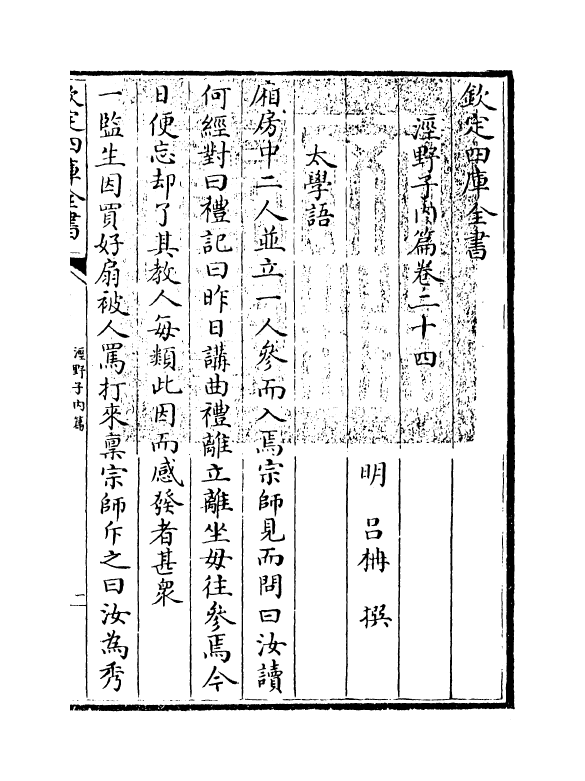 欽定四庫全書
涇野子內篇卷二十四
明　呂柟　撰
太學語
廂房中二人並立一人參而入焉宗師見而問曰汝讀
何經對曰禮記曰昨日講曲禮離立離坐毋往參焉今
日便忘却了其教人毎類此因而感發者甚衆
一監生因買好扇被人罵打來稟宗師斥之曰汝為秀
欽定四庫全書
涇野子內篇